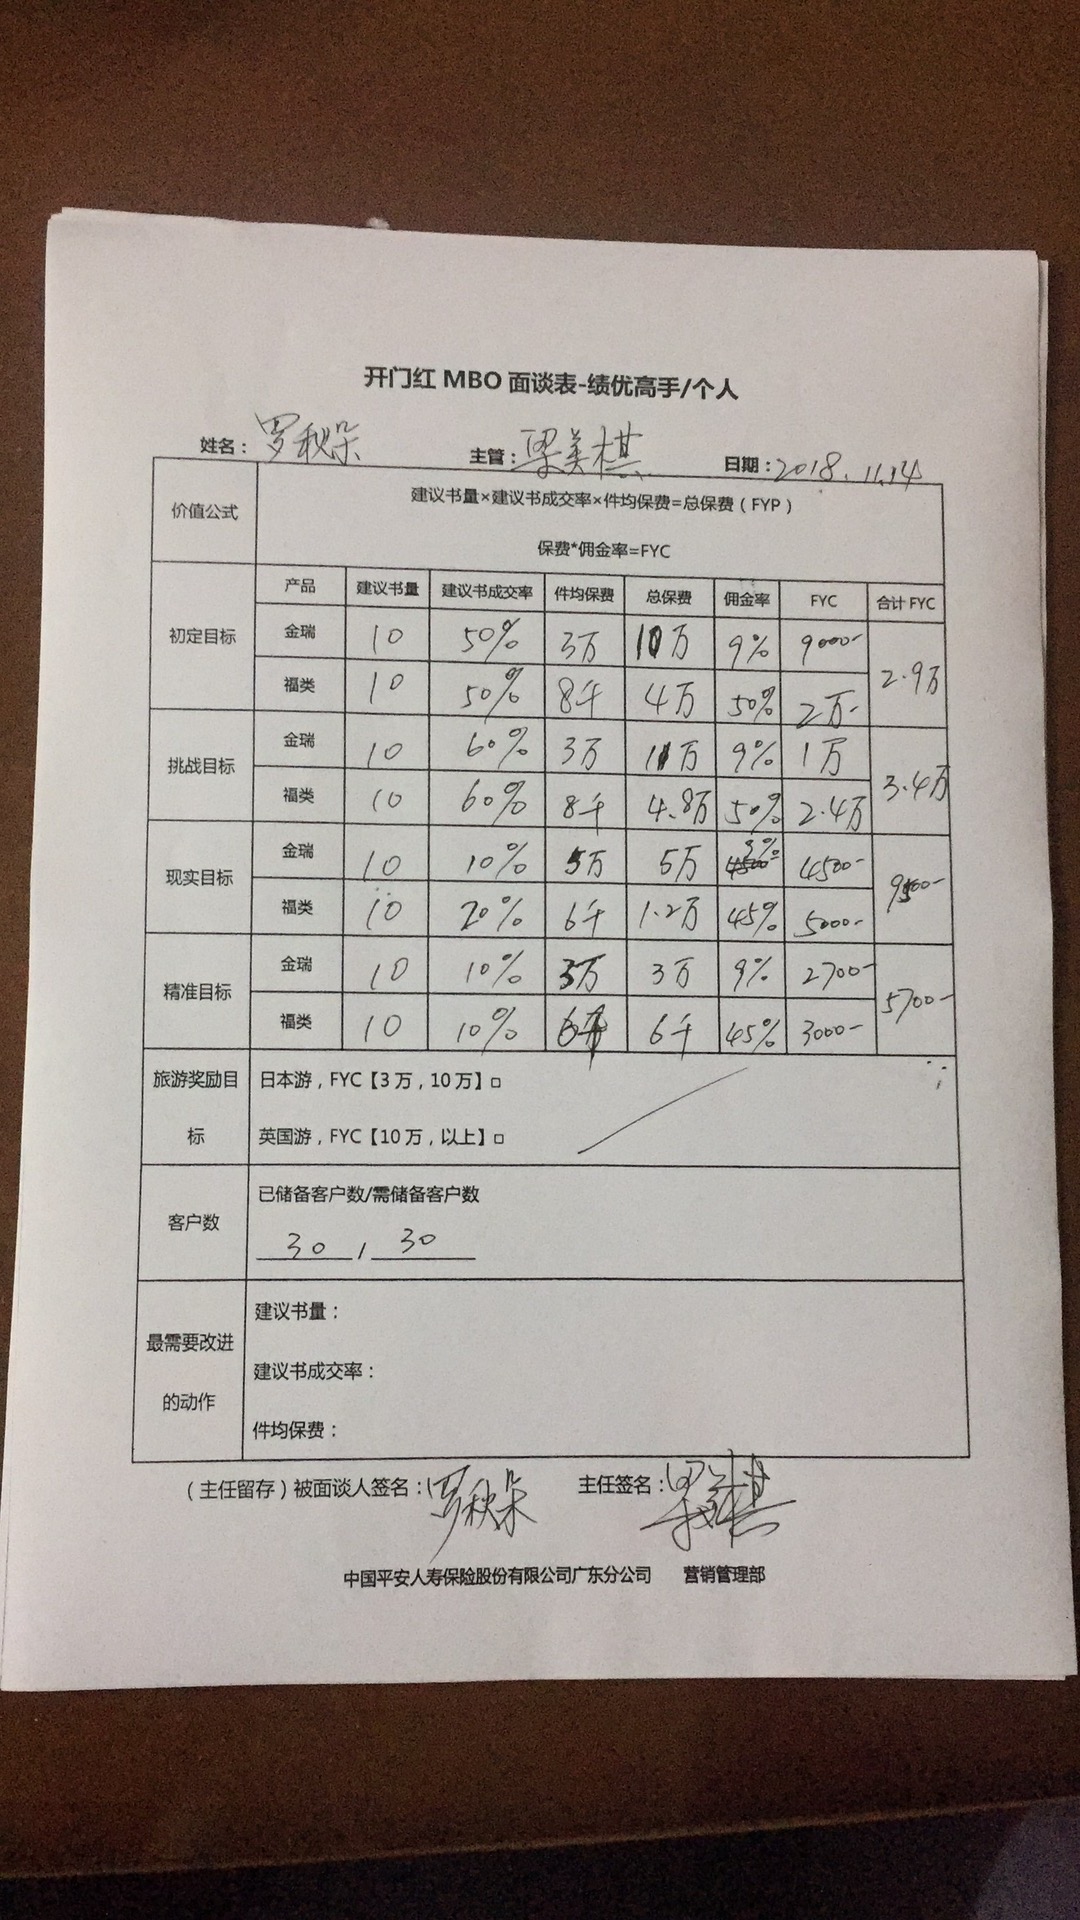 开门红 MBO 面谈表-绩优高手/个人
姓名：罗秋朵 主管：梁美棋 日期：2018.11.14
价值公式 建议书量×建议书成交率×件均保费=总保费（FYP）
保费*佣金率=FYC
产品 建议书量 建议书成交率 件均保费 总保费 佣金率 FYC 合计 FYC
初定目标 金瑞 10 50% 3万 10万 9% 9000- 2.9万
福类 10 50% 8千 4万 50% 2万-
挑战目标 金瑞 10 60% 3万 11万 9% 1万 3.4万
福类 10 60% 8千 4.8万 50% 2.4万
现实目标 金瑞 10 10% 5万 5万 9% 4500- 9500-
福类 10 20% 6千 1.2万 45% 5000-
精准目标 金瑞 10 10% 3万 3万 9% 2700- 5700-
福类 10 10% 6千 6千 45% 3000-
旅游奖励目标 日本游，FYC【3 万，10 万】□
英国游，FYC【10 万，以上】□
客户数 已储备客户数/需储备客户数
30 / 30
最需要改进的动作 建议书量：
建议书成交率：
件均保费：
（主任留存）被面谈人签名：罗秋朵 主任签名：梁美棋
中国平安人寿保险股份有限公司广东分公司 营销管理部